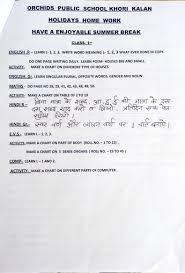 ORCHIDS PUBLIC SCHOOL KHORI KALAN
HOLIDAYS HOME WORK
HAVE A ENJOYABLE SUMMER BREAK
CLASS. 1st
ENGLISH R:- LEARN L- 1, 2, 3, WRITE WORD MEANING L-1, 2, 3 WHAT EVER DONE IN COPY.
DO ONE PAGE WRITING DAILY. LEARN POEM- HOUSES BIG AND SMALL.
ACTIVITY: MAKE A CHART ON DIFFERENT TYPE OF HOUSES
ENGLISH G:- LEARN SINGULAR PLURAL, OPPOSITE WORDS, GENDER AND NOUN.
MATHS:- DO PAGE NO 28, 29, 38, 41, 45, 46, 50, 51
ACTIVITY: MAKE A CHART ON TABLE OF 2 TO 10
HINDI:-
E.V.S.- LEARN L- 1, 2, 3, 4.
ACTIVITY- MAKE A CHART ON PART OF BODY (ROLL NO. – 1 TO 22)
MAKE A CHART ON 5 SENSE ORGANS ( ROLL NO. – 23 TO 45)
COMP:- LEARN L- 1, 2
ACTIVITY: MAKE A CHART ON PARTS OF COMPUTER.